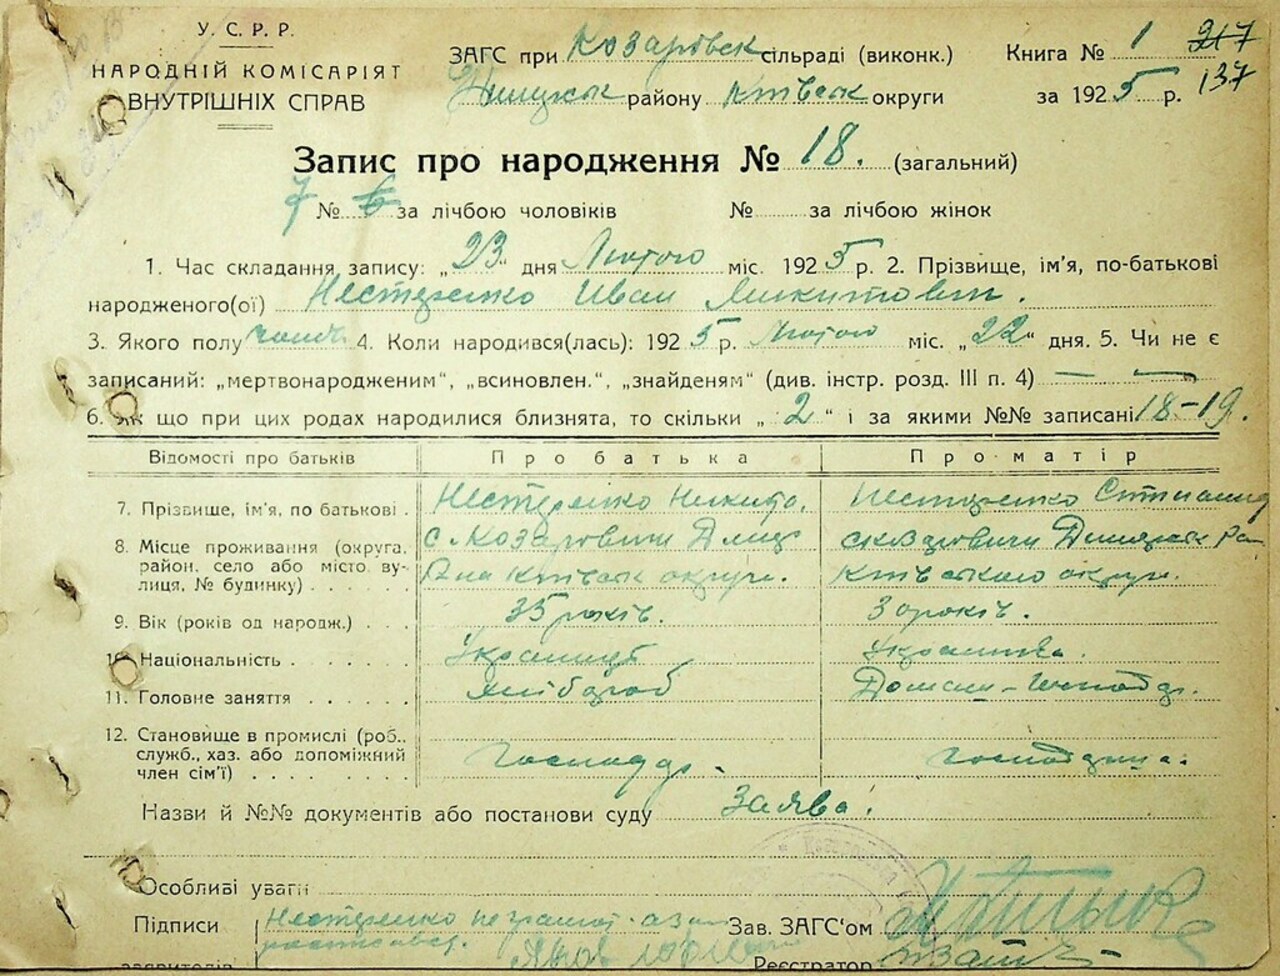 У. С. Р. Р.
НАРОДНІЙ КОМІСАРІЯТ
ВНУТРІШНІХ СПРАВ
ЗАГС при Козаровск сільраді (виконк.) Книга № 1 217
району Київськ округи за 1925 р. 137
Запис про народження № 18. (загальний)
7 № 6 за лічбою чоловіків № за лічбою жінок
1. Час складання запису: „23“ дня Лютого міс. 1925 р. 2. Прізвище, ім'я, по-батькові
народженого(ої) Нестеренко Иван Микитович.
3. Якого полу чолов. 4. Коли народився(лась): 1925 р. Лютого міс. „22“ дня. 5. Чи не є
записаний: „мертвонародженим“, „всиновлен.“, „знайденям“ (див. інстр. розд. III п. 4) — —
6. Як що при цих родах народилися близнята, то скільки „2“ і за якими №№ записані 18-19.
Відомості про батьків Про батька Про матір
7. Прізвище, ім'я, по батькові . Нестеренко Никита. Нестеренко
8. Місце проживання (округа, с. Козаровичи Димер с Козаровичи Димерськ Рай
район, село або місто, ву- Р на Київськ округи. Київського округи.
лиця, № будинку) . . . . .
9. Вік (років од народж.) . . . 35 років. 30 років.
10. Національність . . . . . . . Українець Українка.
11. Головне заняття . . . . . . хлібороб Домашн-господ.
12. Становище в промислі (роб.,
служб., хаз. або допоміжний Господар. Господиня.
член сім'ї) . . . . . . . . .
Назви й №№ документів або постанови суду Заява.
Особливі уваги
Підписи Нестеренко неграмот. а за Зав. ЗАГС'ом
заявителів росписався. Яков Реєстратор